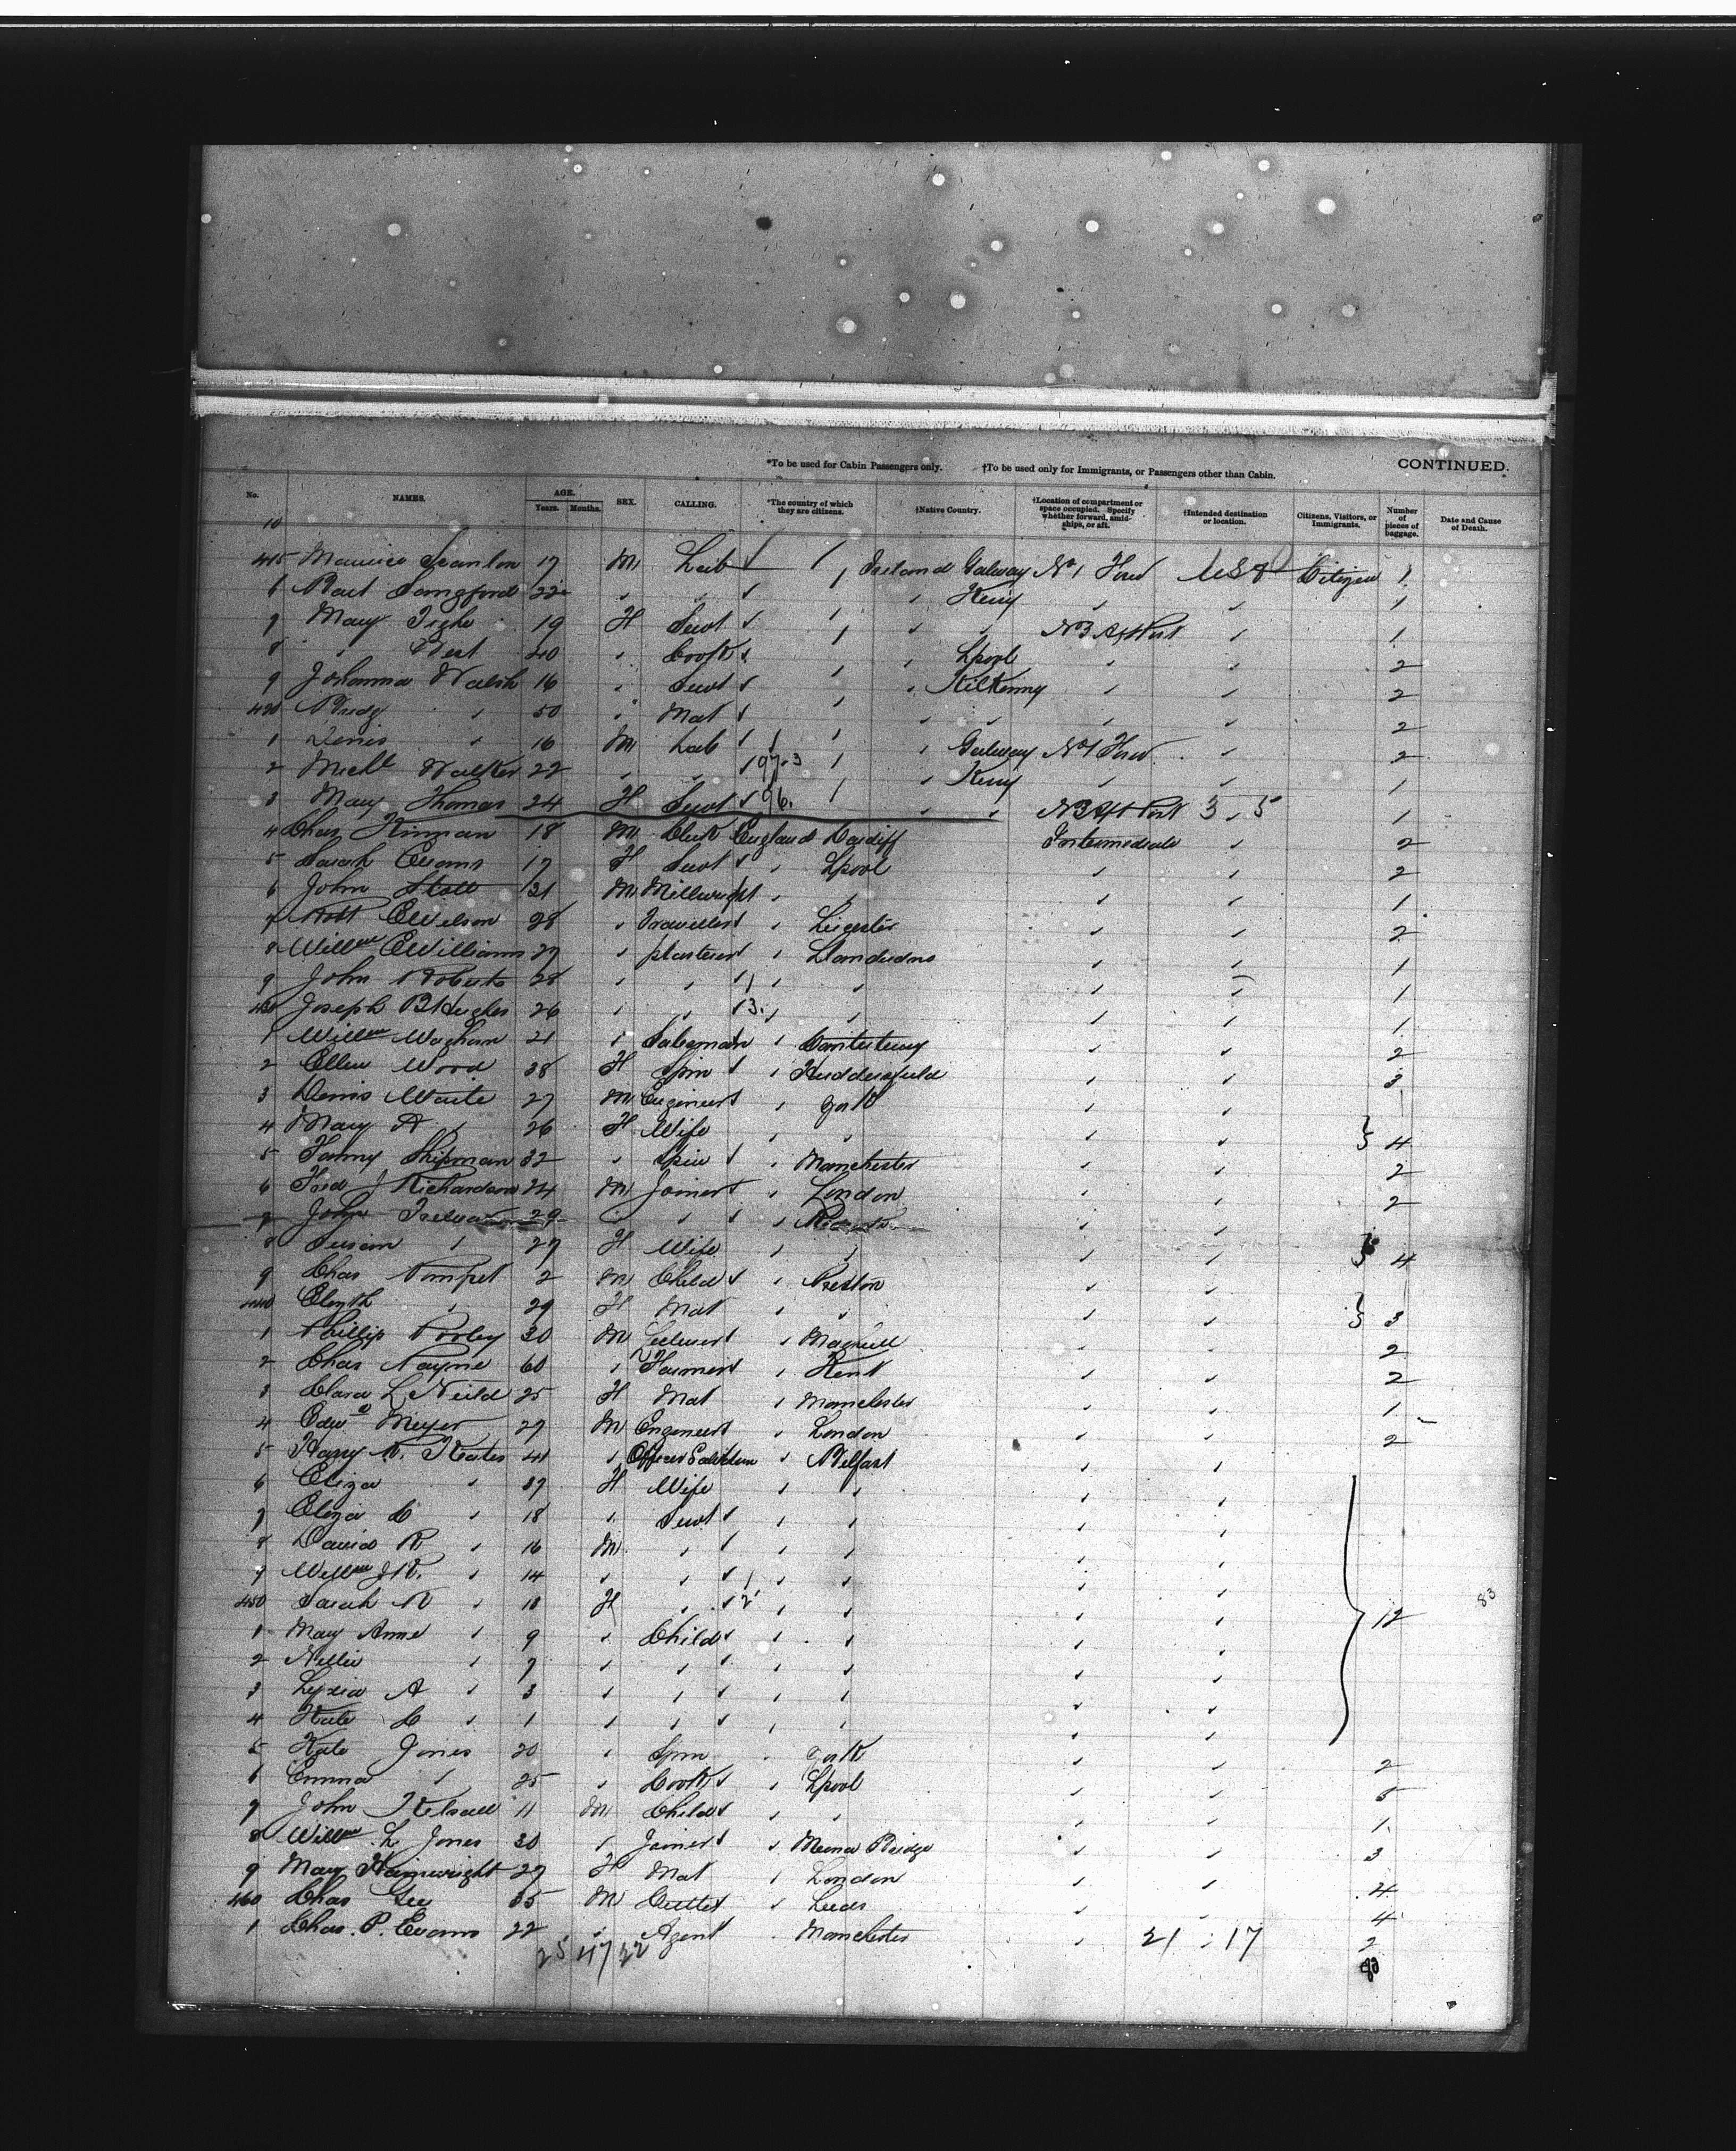 *To be used for Cabin Passengers only. †To be used only for Immigrants, or Passengers other than Cabin. CONTINUED.
No. NAMES. AGE. Years. Months. SEX. CALLING. *The country of which they are citizens. †Native Country. †Location of compartment or space occupied. Specify whether forward, amidships, or aft. †Intended destination or location. Citizens, Visitors, or Immigrants. Number of pieces of baggage. Date and Cause of Death.
10
415 Maurice Scanlon 17 M Lab Ireland Galway No 1 Forw USA Citizen 1
6 Langford 22 Kerry 1
7 Mary Tighe 19 F Servt No 3 Aft Port 1
8 " West 40 Cook Lpool 2
9 Johanna Walsh 16 Servt Kilkenny 2
420 Bridg " 50 Mat 2
1 Denis " 16 M Lab Galway No 1 Forw 2
2 Michl Walker 22 97-3 Kerry 1
3 Mary Thomas 24 F Servt 96. No 3 Aft Port 3 5 1
4 Chas Kinman 18 M Clerk England Cardiff Intermediate 2
5 Sarah Evans 17 F Servt Lpool 2
6 John Stoll 31 M Millwright 1
7 Robt E Wilson 28 Traveller Leicester 2
8 Willm E Williams 27 plasterer Llandudno 1
9 John Roberts 28 1
430 Joseph B Hughes 26 13. 1
1 Willm Wegham 21 Salesman Canterbury 2
2 Ellen Wood 38 F Spin Huddersfield 3
3 Denis Waite 27 M Engineer York
4 Mary A " 26 F Wife 4
5 Fanny Shipman 32 Spin Manchester 2
6 Fred J Richardson 24 M Joiner London 2
7 John 29
8 Susan " 27 F Wife 4
9 Chas 2 M Child Preston
440 Elizth " 29 F Mat 3
1 Phillip 30 M 2
2 Chas Payne 60 Farmer Kent 2
3 Clara L Neild 25 F Mat Manchester 1
4 Edwd Meyer 27 M Engineer London 2
5 Harry R. Keates 41 Belfast
6 Eliza " 37 F Wife
7 Eliza C " 18 Servt
8 David R " 16 M
9 Willm J R. " 14 1
450 Sarah R " 18 F 2 12
1 Mary Anne " 9 Child
2 Nellie " 7
3 A " 3
4 Kate C " 1
5 Kate Jones 20 Spin York 2
6 Emma " 25 Cook Lpool 5
7 John Kelsall 11 M Child 1
8 Willm L Jones 30 Joiner Menai Bridge 3
9 Mary Wainwright 27 F Mat London 4
460 Chas Lee 35 M Cutler Leeds 4
1 Chas. P. Evans 22 Agent Manchester 21 : 17 2
25 47 22
83